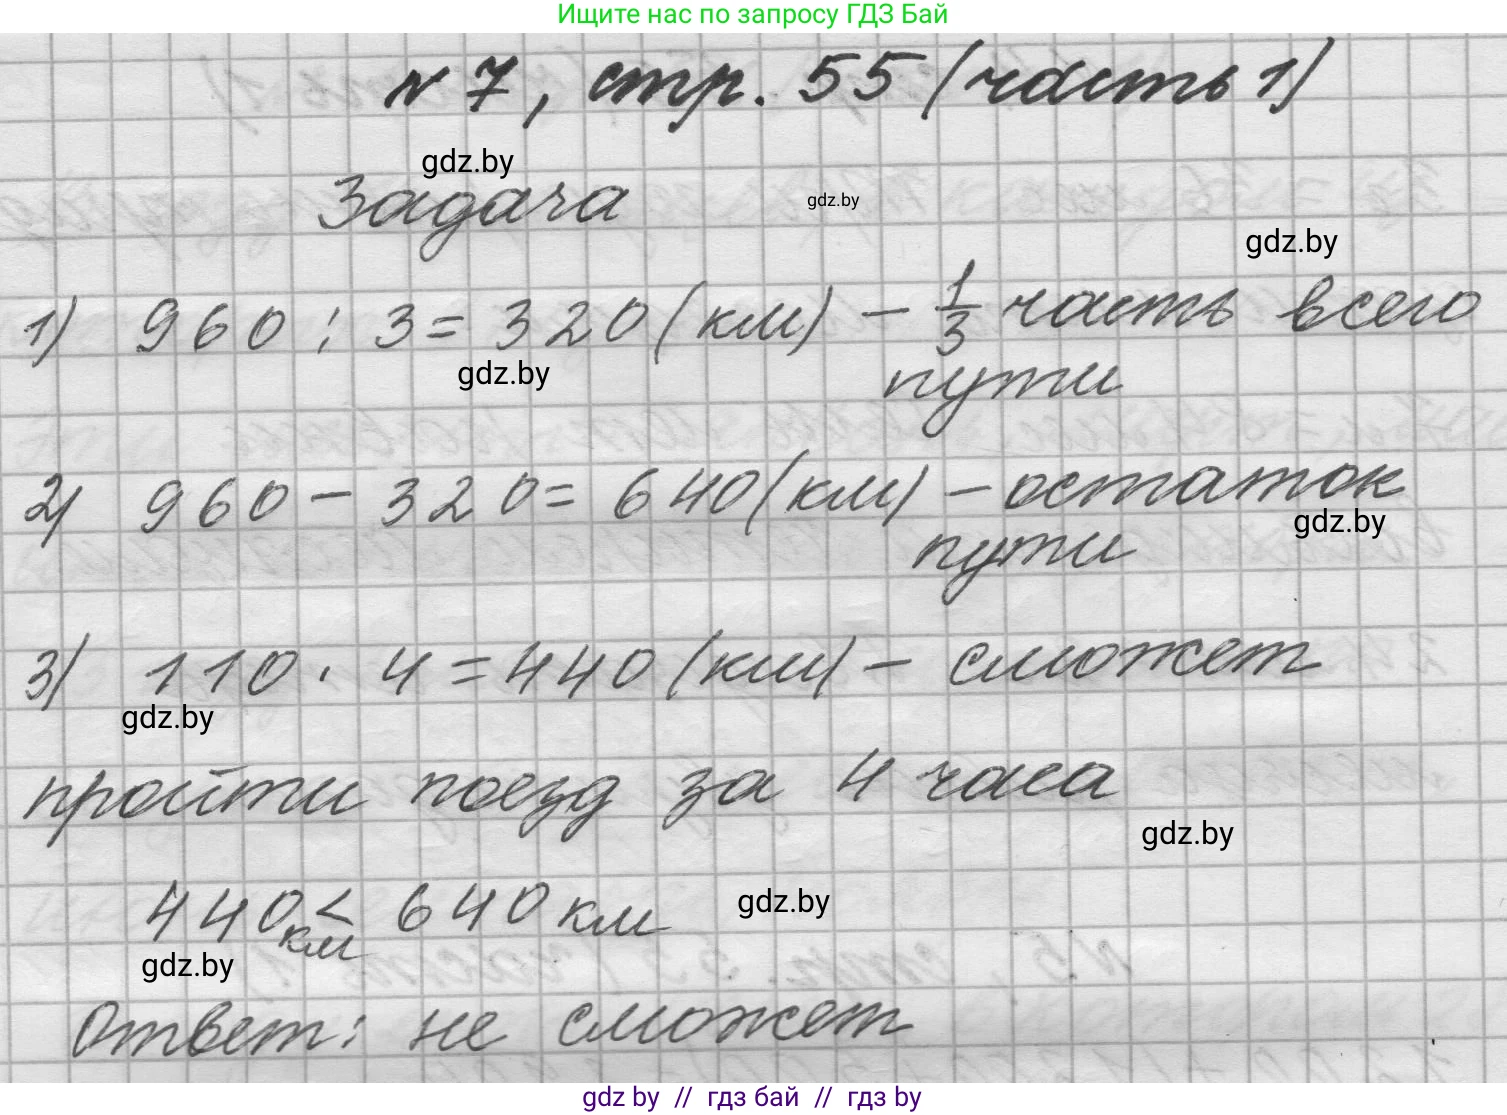 Ищите нас по запросу ГДЗ Бай
№ 7, стр. 55 (часть 1)
gdz.by
Задача
gdz.by
gdz.by
1) 960 : 3 = 320 (км) – 1/3 часть всего
gdz.by
пути
2) 960 – 320 = 640 (км) – остаток
gdz.by
пути
3) 110 · 4 = 440 (км) – сможет
gdz.by
пройти поезд за 4 часа
gdz.by
440 км < 640 км
gdz.by
gdz.by
Ответ: не сможет
gdz.by // гдз бай // гдз by